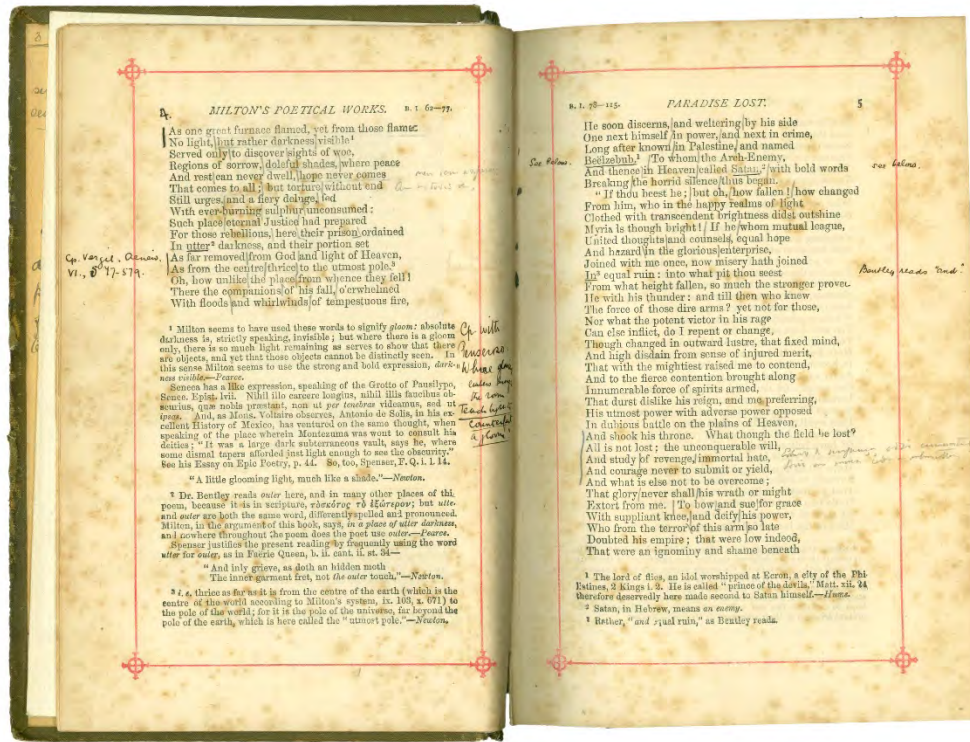 4. MILTON'S POETICAL WORKS. B. I. 62—77.
As one great furnace flamed, yet from those flames
No light, but rather darkness visible¹
Served only to discover sights of woe,
Regions of sorrow, doleful shades, where peace
And rest can never dwell, hope never comes
That comes to all; but torture without end
Still urges, and a fiery deluge, fed
With ever-burning sulphur unconsumed:
Such place eternal Justice had prepared
For those rebellious, here their prison ordained
In utter² darkness, and their portion set
As far removed from God and light of Heaven,
As from the centre thrice to the utmost pole.³
Oh, how unlike the place from whence they fell!
There the companions of his fall, o'erwhelmed
With floods and whirlwinds of tempestuous fire,
Cp. Vergil, Aeneis,
VI., 577-579.
¹ Milton seems to have used these words to signify gloom: absolute
darkness is, strictly speaking, invisible; but where there is a gloom
only, there is so much light remaining as serves to show that there
are objects, and yet that those objects cannot be distinctly seen. In
this sense Milton seems to use the strong and bold expression, dark-
ness visible.—Pearce.
Seneca has a like expression, speaking of the Grotto of Pausilypo,
Senec. Epist. lvii. Nihil illo carcere longius, nihil illis faucibus ob-
scurius, quæ nobis præstant, non ut per tenebras videamus, sed ut
ipsas. And, as Mons. Voltaire observes, Antonio de Solis, in his ex-
cellent History of Mexico, has ventured on the same thought, when
speaking of the place wherein Montezuma was wont to consult his
deities; "It was a large dark subterraneous vault, says he, where
some dismal tapers afforded just light enough to see the obscurity."
See his Essay on Epic Poetry, p. 44. So, too, Spenser, F. Q. i. 1. 14.
"A little glooming light, much like a shade."—Newton.
² Dr. Bentley reads outer here, and in many other places of this
poem, because it is in scripture, τὸ σκότος τὸ ἐξώτερον; but utter
and outer are both the same word, differently spelled and pronounced.
Milton, in the argument of this book, says, in a place of utter darkness,
and nowhere throughout the poem does the poet use outer.—Pearce.
Spenser justifies the present reading by frequently using the word
utter for outer, as in Faërie Queen, b. ii. cant. ii. st. 34—
"And inly grieve, as doth an hidden moth
The inner garment fret, not the outer touch."—Newton.
³ i. e. thrice as far as it is from the centre of the earth (which is the
centre of the world according to Milton's system, ix. 103, x. 671) to
the pole of the world; for it is the pole of the universe, far beyond the
pole of the earth, which is here called the "utmost pole."—Newton.
Cp. with
Penseroso
Where glowing
embers thro'
the room
Teach light to
counterfeit
a gloom
B. I. 78—115. PARADISE LOST. 5
He soon discerns, and weltering by his side
One next himself in power, and next in crime,
Long after known in Palestine, and named
Beëlzebub.¹ To whom the Arch-Enemy,
And thence in Heaven called Satan,² with bold words
Breaking the horrid silence thus began.
"If thou beest he; but oh, how fallen! how changed
From him, who in the happy realms of light
Clothed with transcendent brightness didst outshine
Myriads though bright! If he whom mutual league,
United thoughts and counsels, equal hope
And hazard in the glorious enterprise,
Joined with me once, now misery hath joined
In³ equal ruin: into what pit thou seest
From what height fallen, so much the stronger proved
He with his thunder: and till then who knew
The force of those dire arms? yet not for those,
Nor what the potent victor in his rage
Can else inflict, do I repent or change,
Though changed in outward lustre, that fixed mind,
And high disdain from sense of injured merit,
That with the mightiest raised me to contend,
And to the fierce contention brought along
Innumerable force of spirits armed,
That durst dislike his reign, and me preferring,
His utmost power with adverse power opposed
In dubious battle on the plains of Heaven,
And shook his throne. What though the field be lost?
All is not lost; the unconquerable will,
And study of revenge, immortal hate,
And courage never to submit or yield,
And what is else not to be overcome;
That glory never shall his wrath or might
Extort from me. To bow and sue for grace
With suppliant knee, and deify his power,
Who from the terror of this arm so late
Doubted his empire; that were low indeed,
That were an ignominy and shame beneath
See below.
see below.
Bentley reads "and."
¹ The lord of flies, an idol worshipped at Ecron, a city of the Phi-
listines, 2 Kings i. 2. He is called "prince of the devils," Matt. xii. 24
therefore deservedly here made second to Satan himself.—Hume.
² Satan, in Hebrew, means an enemy.
³ Rather, "and equal ruin," as Bentley reads.